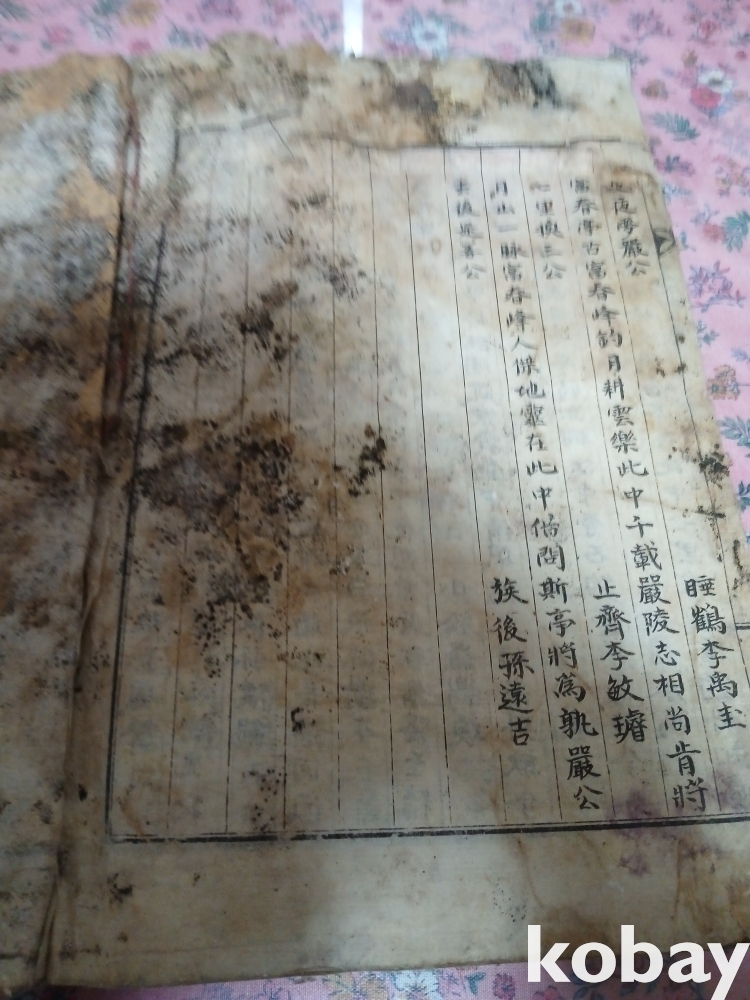 夢嚴公 睡鶴李禹圭
富春亭古富春峰釣月耕雲樂此中千載嚴陵志相尚肯將
里換三公 止齊李敏璿
月出一脉富春峰人傑地靈在此中借問斯亭將爲孰嚴公
後是吾公 族後孫遠吉
kobay